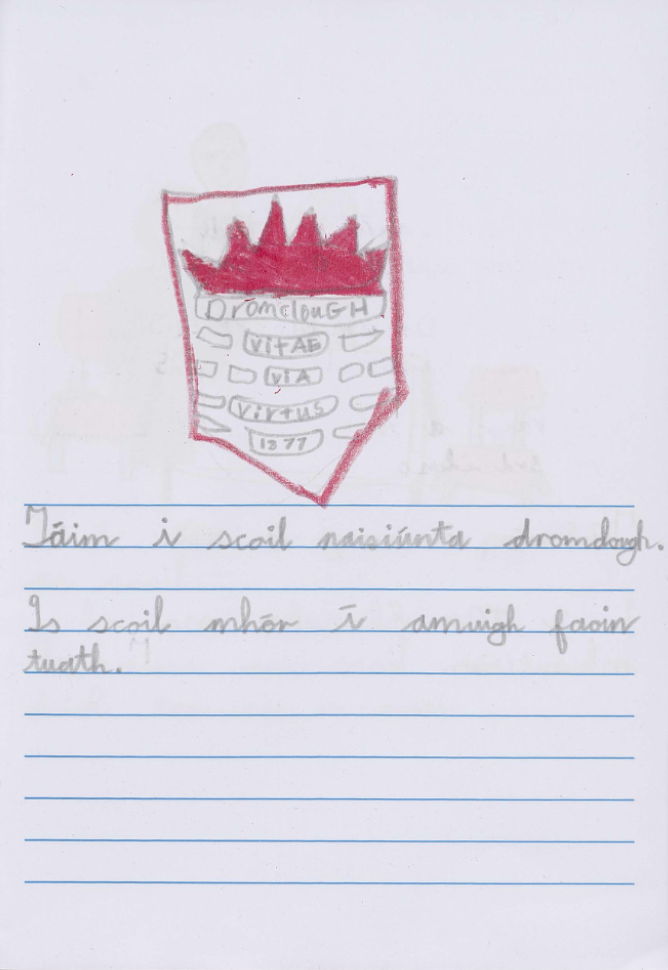 DromclouGH
vitAE
viA
virtus
1877
Táim i scoil naisiúnta dromclough.
Is scoil mhór í amuigh faoin
tuath.